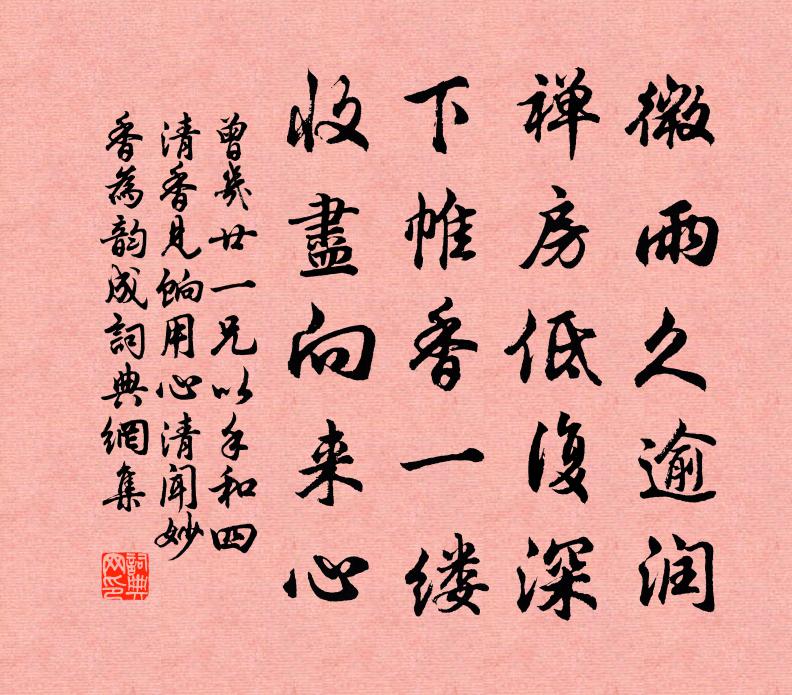 微雨久逾润
禅房低復深
下帷香一缕
收盡向来心
曾幾廿一兄以手和四
清香見餉用心清闻妙
香為韵成詞典網集
詞典网印